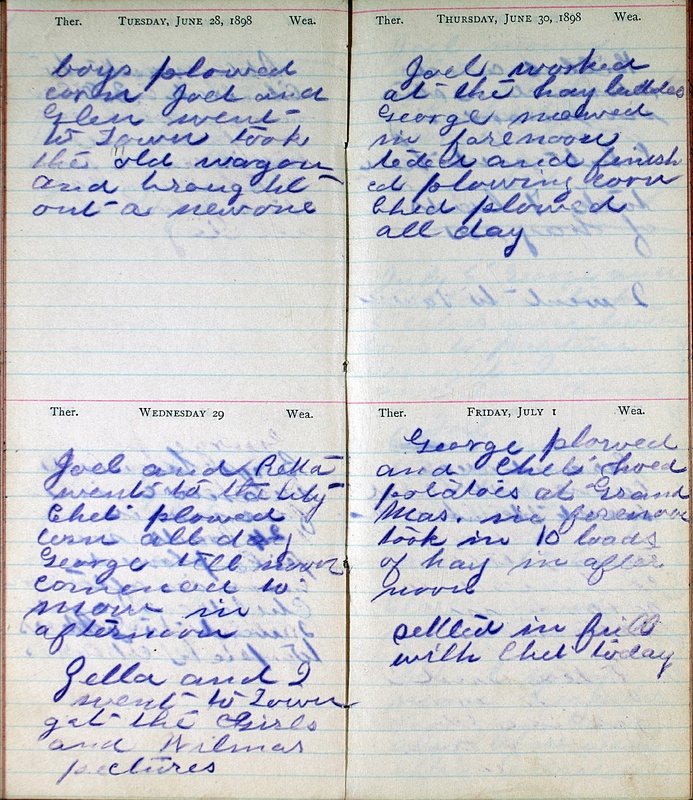 Ther. Tuesday, June 28, 1898 Wea.
boys plowed
corn Joel and
Glen went
to Town took
the old wagon
and brought
out a new one
Ther. Wednesday 29 Wea.
Joel and Retta
went to the city
Chet plowed
corn all day
George till noon
comenced to
mow in
afternoon
Zella and I
went to Town
got the Girls
and Wilmas
pectures
Ther. Thursday, June 30, 1898 Wea.
Joel worked
at the hay ladder
George mowed
in forenoon
teded and finish
ed plowing corn
Ched plowed
all day
Ther. Friday, July 1 Wea.
George plowed
and Chet hoed
potatoes at Grand
Mas. in forenoon
took in 10 loads
of hay in after
noon
settled in full
with Chet today